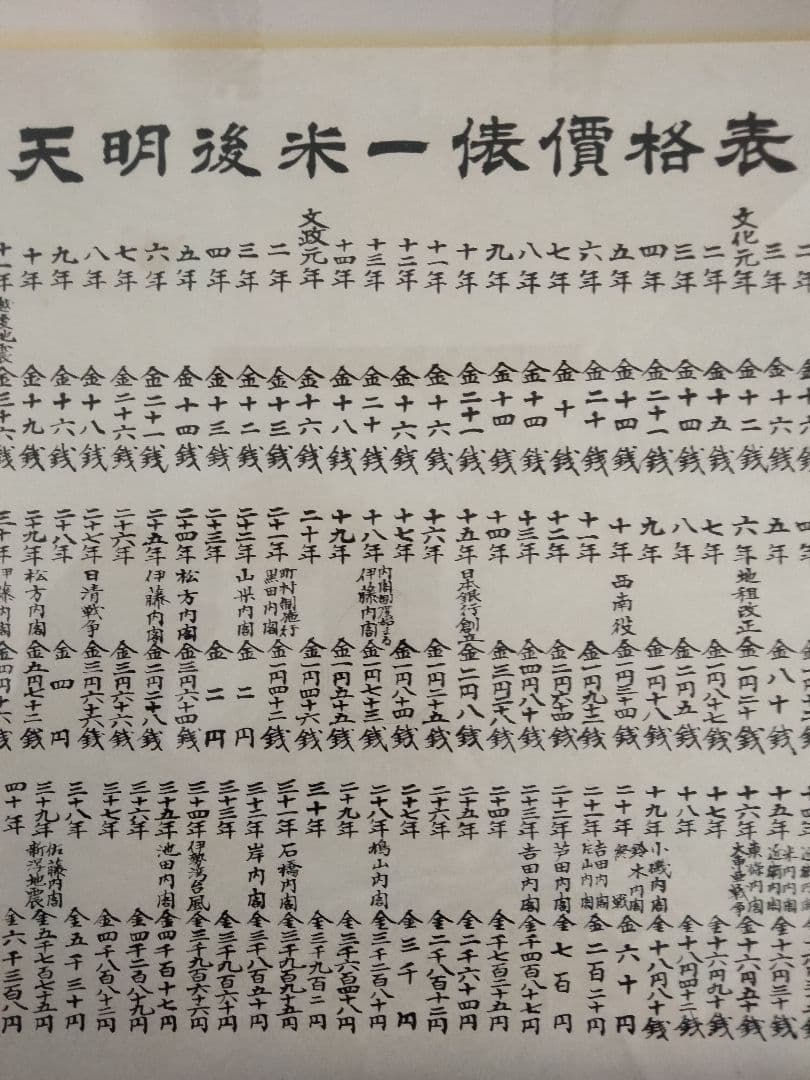 天明後米一俵價格表
三年 金十六銭
文化元年 金十二銭
二年 金十五銭
三年 金十四銭
四年 金二十一銭
五年 金十四銭
六年 金二十銭
七年 金十銭
八年 金十四銭
九年 金十四銭
十年 金二十一銭
十一年 金十六銭
十二年 金十六銭
十三年 金二十銭
十四年 金十八銭
文政元年 金十六銭
二年 金十三銭
三年 金十二銭
四年 金十三銭
五年 金十四銭
六年 金二十一銭
七年 金二十六銭
八年 金十八銭
九年 金十六銭
十年 金十九銭
十一年 地震 金三十六銭
五年 金八十銭
六年 地租改正 金一円二十銭
七年 金一円八十七銭
八年 金二円五銭
九年 金一円十八銭
十年 西南役 金一円三十四銭
十一年 金一円九十三銭
十二年 金二円九十四銭
十三年 金四円八十銭
十四年 金三円三十八銭
十五年 日本銀行創立 金二円八銭
十六年 金一円二十五銭
十七年 金一円八十四銭
十八年 内閣制度始まる 伊藤内閣 金一円七十三銭
十九年 金一円五十五銭
二十年 金一円四十六銭
二十一年 町村制施行 黒田内閣 金一円四十二銭
二十二年 山県内閣 金二円
二十三年 金二円
二十四年 松方内閣 金三円六十四銭
二十五年 伊藤内閣 金二円二十八銭
二十六年 金三円六十六銭
二十七年 日清戦争 金三円六十六銭
二十八年 金四円
二十九年 松方内閣 金五円七十二銭
三十年 伊藤内閣 金四円十六銭
十五年 米内内閣 近衛内閣 金十六円三十銭
十六年 東條内閣 大東亜戦争 金十六円五十銭
十七年 金十六円九十銭
十八年 金十八円四十二銭
十九年 小磯内閣 金十八円八十銭
二十年 鈴木内閣 終戦 金六十円
二十一年 吉田内閣 片山内閣 金二百二十円
二十二年 芦田内閣 金七百円
二十三年 吉田内閣 金千四百八十七円
二十四年 金千七百二十五円
二十五年 金二千六十四円
二十六年 金二千八百十二円
二十七年 金三千円
二十八年 鳩山内閣 金三千二百八十円
二十九年 金三千六百四十八円
三十年 金三千九百二円
三十一年 石橋内閣 金三千九百九十五円
三十二年 岸内閣 金三千八百五十円
三十三年 金三千九百六十円
三十四年 伊勢湾台風 金三千九百六十六円
三十五年 池田内閣 金四千百十七円
三十六年 金四千二百八十九円
三十七年 金四千八百八十二円
三十八年 金五千三十円
三十九年 佐藤内閣 新潟地震 金五千七百七十五円
四十年 金六千三百八円